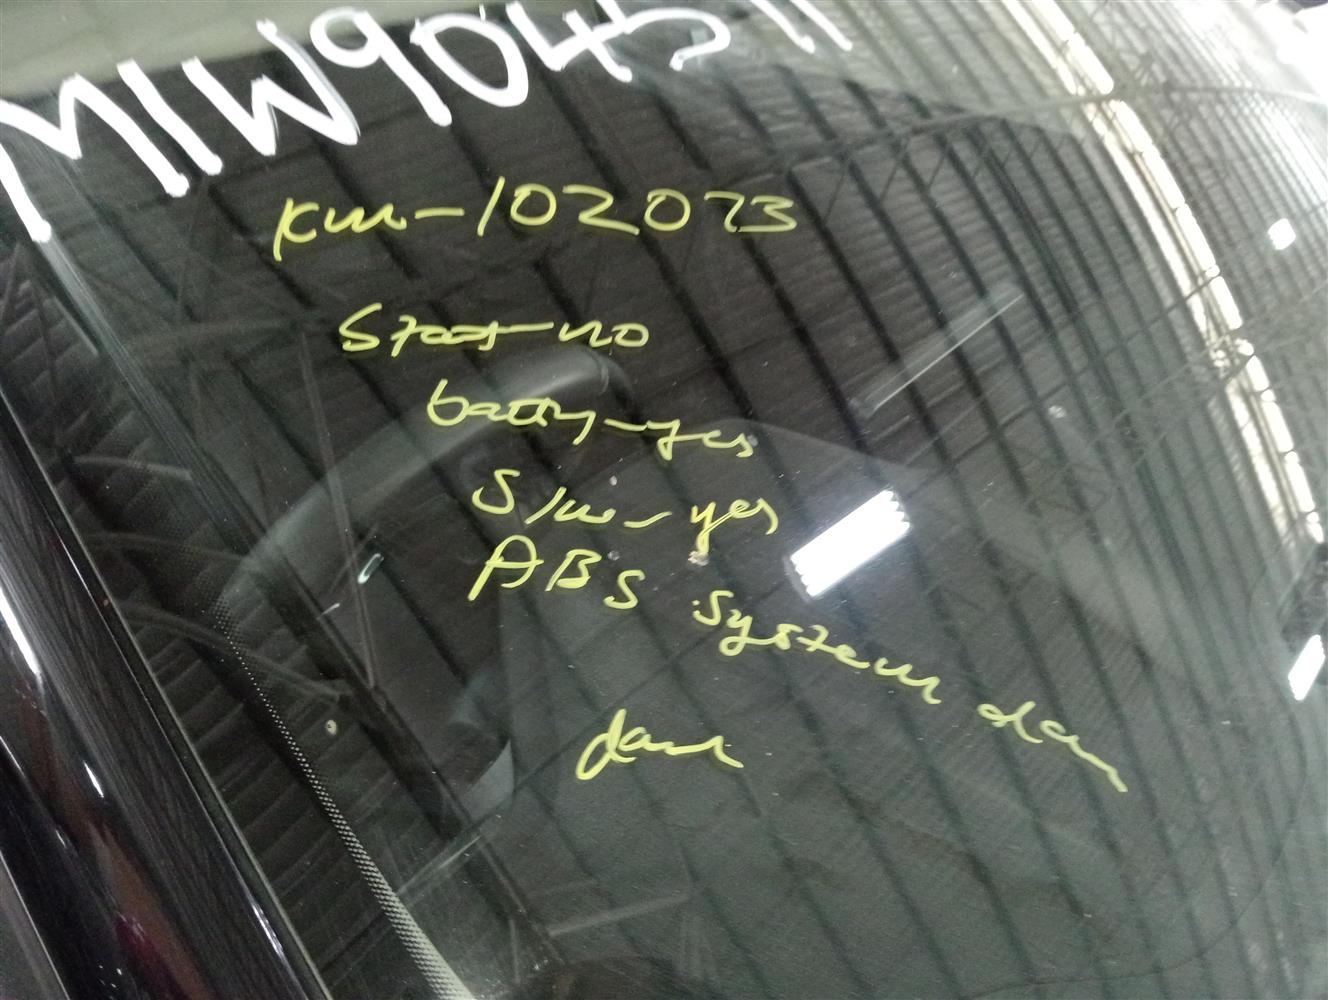 MIW904511
Km-102073
Start-no
battry-yes
S/w-yes
ABS System dam
dam